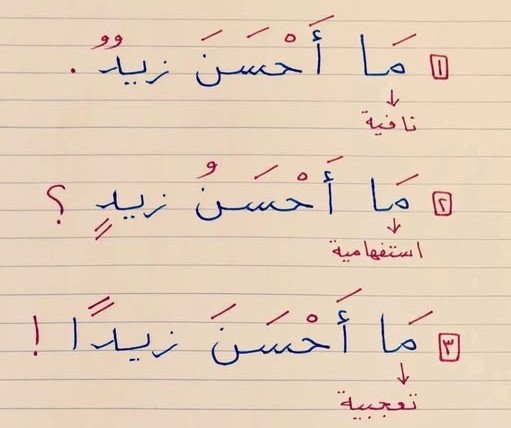 ١ مَا أَحْسَنَ زيدٌ .
نافية
٢ مَا أَحْسَنُ زيدٍ ؟
استفهامية
٣ مَا أَحْسَنَ زيدًا !
تعجبية